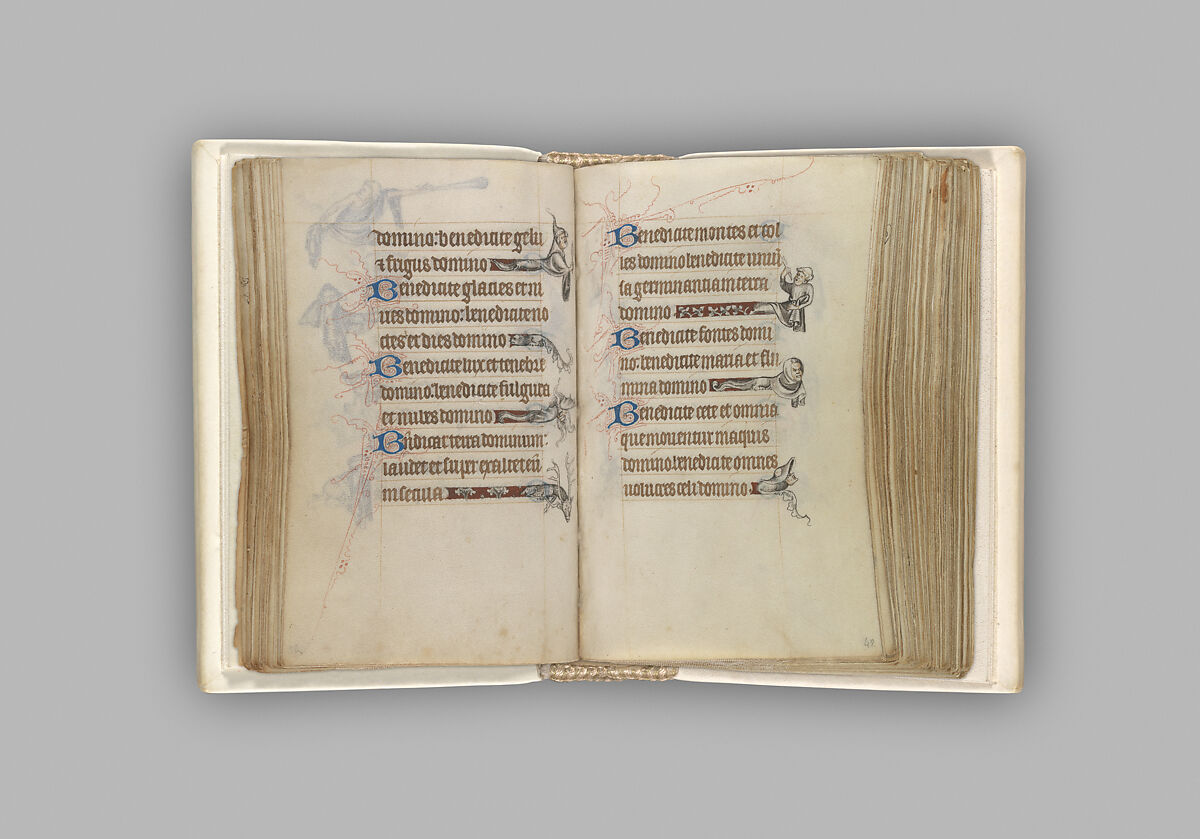 domino: benedicite gelu
⁊ frigus domino
Benedicite glacies et ni
ues domino: benedicite no
ctes et dies domino
Benedicite lux et tenebre
domino: benedicite fulgura
et nubes domino
Bndicat terra dominum:
laudet et super exaltet eū
in secula
Benedicite montes et col
les domino benedicite uniu
sa germinantia in terra
domino
Benedicite fontes domi
no: benedicite maria et flu
mina domino
Benedicite cete et omnia
que mouentur in aquis
domino: benedicite omnes
uolucres celi domino